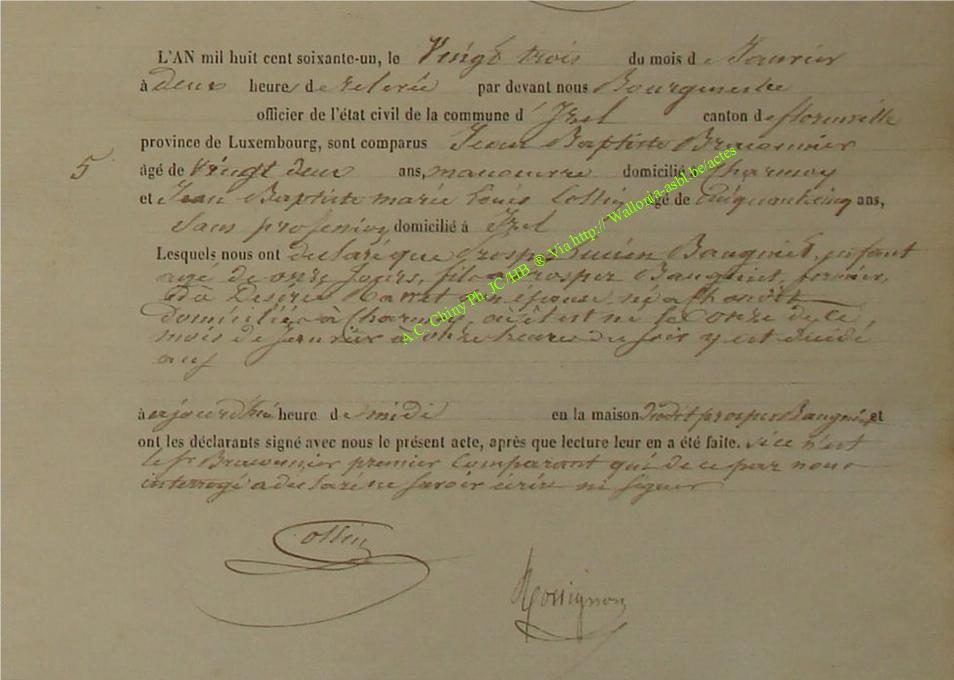 L'AN mil huit cent soixante-un, le Vingt trois du mois de Janvier
à deux heures de relevée par devant nous Bourgmestre
officier de l'état civil de la commune d' Izel canton de florenville
province de Luxembourg, sont comparus Jean Baptiste
5 âgé de Vingt deux ans, manoeuvre domicilié à Charmoy
et Jean Baptiste marie Louis Collin âgé de Cinquante cinq ans,
Sans profession domicilié à Izel
Lesquels nous ont déclaré que prosper Lucien Bauguiet, enfant
agé de onze Jours, fils prosper Bauguiet, fermier,
et de Desirée son épouse, né a
domiciliés a Charmoy, où il est né le Onze de ce
mois de Janvier à onze heures du soir y est décédé
à ajourd'hui heure de midi en la maison dudit prosper Bauguiet et
ont les déclarants signé avec nous le présent acte, après que lecture leur en a été faite. si ce n'est
le sr premier Comparant qui de ce par nous
interrogé a declaré ne savoir écrire ni signer
Collin
Rossignon
A.C. Chiny Ph, JC/HB ® Via http:// Wallonia-asbl.be/actes